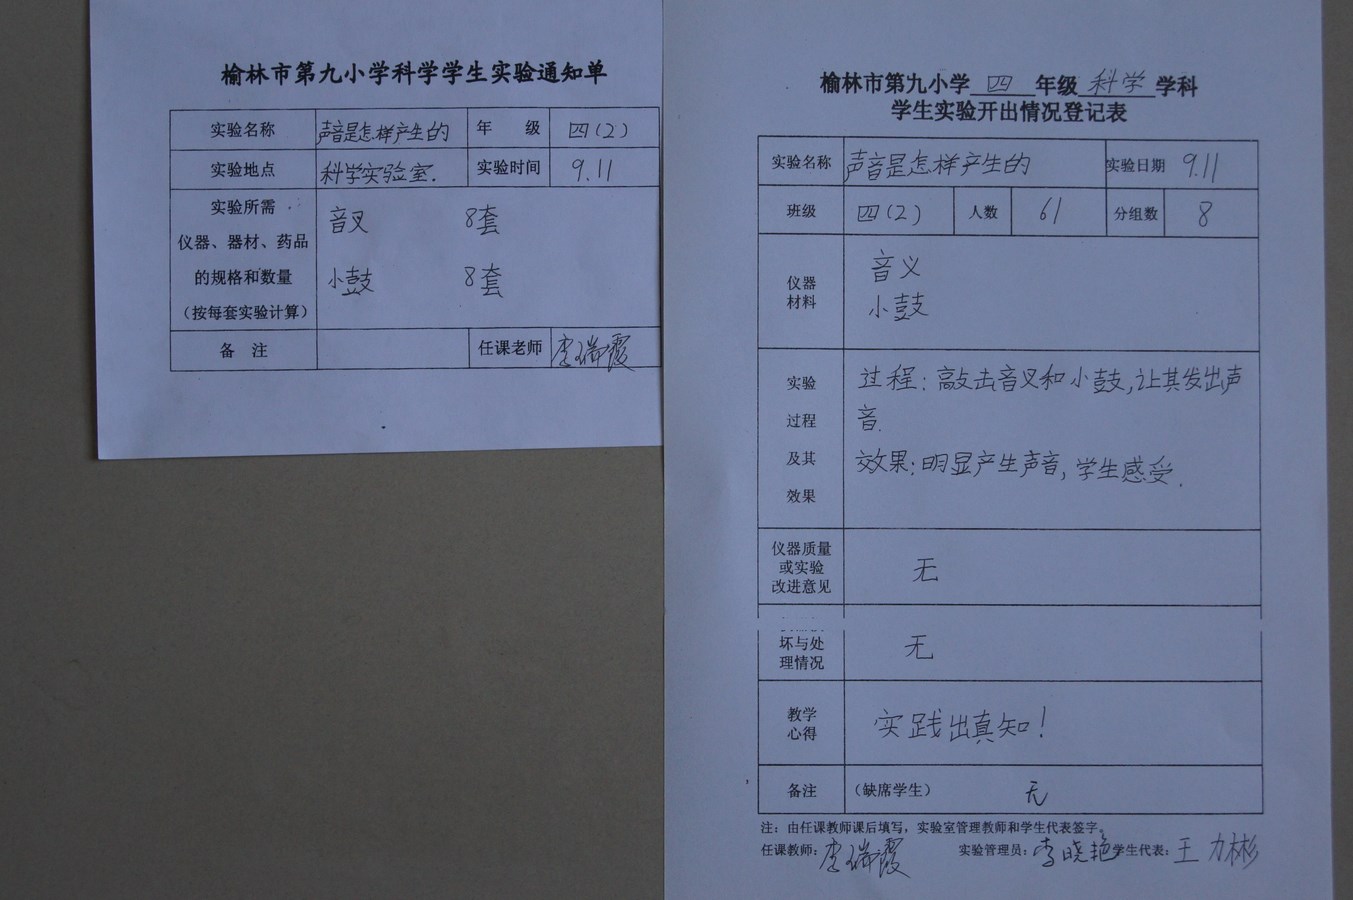 榆林市第九小学科学学生实验通知单
实验名称 声音是怎样产生的 年 级 四(2)
实验地点 科学实验室. 实验时间 9.11
实验所需
仪器、器材、药品
的规格和数量
(按每套实验计算)
音叉 8套
小鼓 8套
备 注 任课老师 李瑞霞
榆林市第九小学 四 年级 科学 学科
学生实验开出情况登记表
实验名称 声音是怎样产生的 实验日期 9.11
班级 四(2) 人数 61 分组数 8
仪器
材料
音义
小鼓
实验
过程
及其
效果
过程:敲击音叉和小鼓,让其发出声
音.
效果:明显产生声音,学生感受.
仪器质量
或实验
改进意见
无
坏与处
理情况
无
教学
心得
实践出真知!
备注 (缺席学生) 无
注:由任课教师课后填写,实验室管理教师和学生代表签字。
任课教师:李瑞霞 实验管理员:李晓艳 学生代表:王